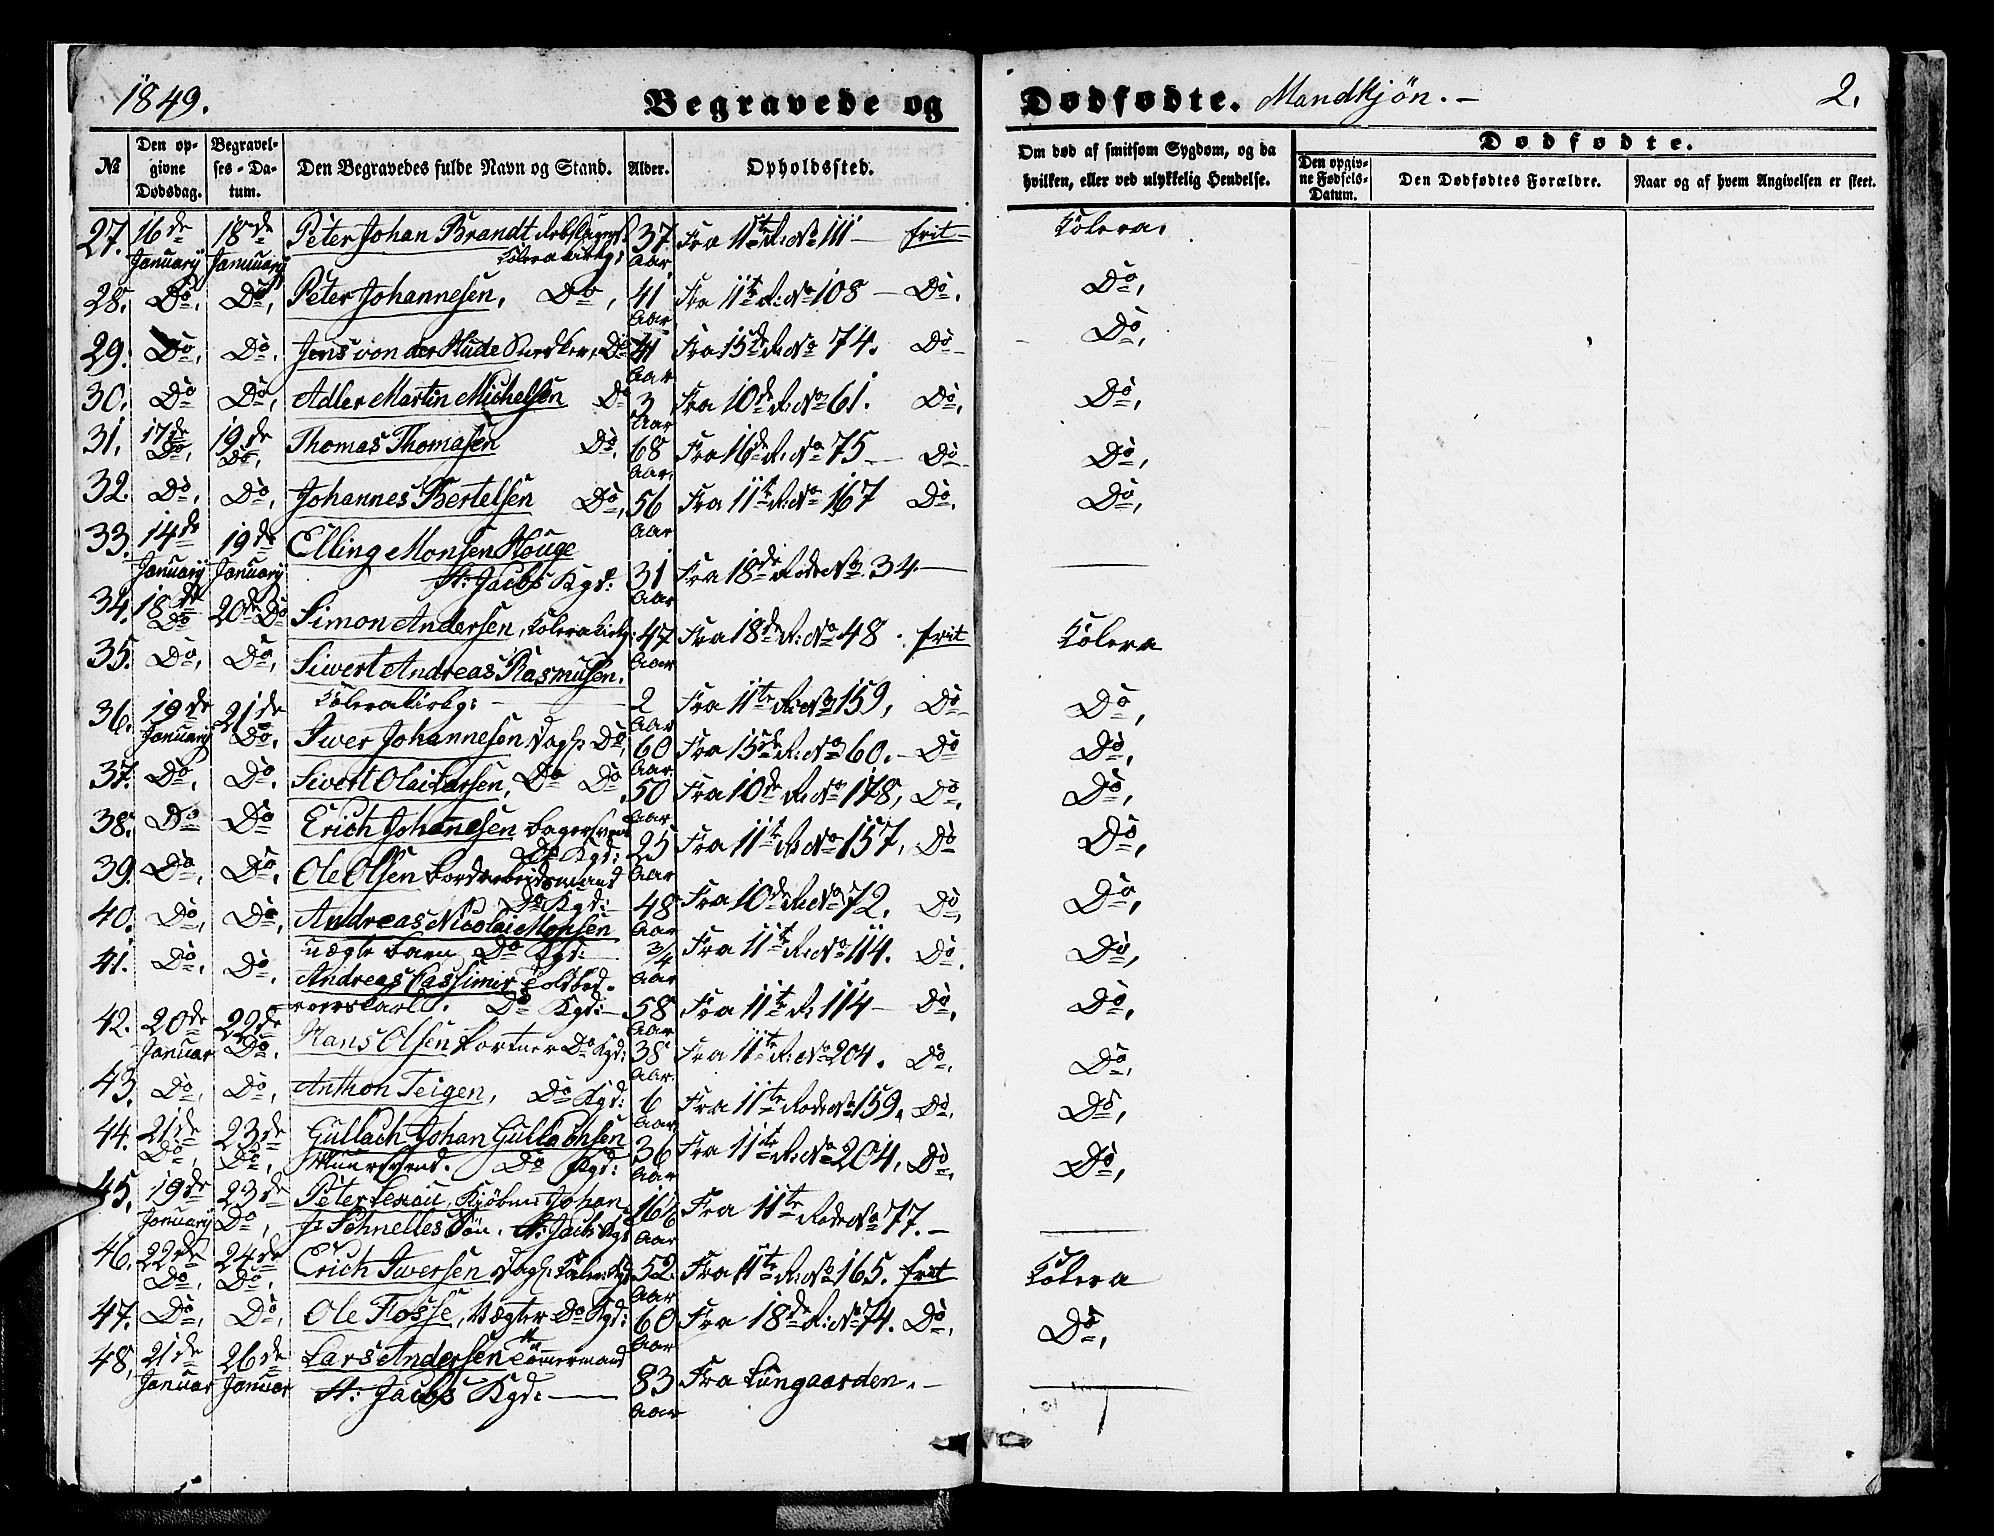 1849. Begravede og Dødfødte. Mandkjøn. — 2.
№ Den opgivne Dødsdag. Begravelses-Datum. Den Begravedes fulde Navn og Stand. Alder. Opholdssted. Om død af smitsom Sygdom, og da hvilken, eller ved ulykkelig Hendelse. Dødfødte.
Den opgivne Fødsels-Datum. Den Dødfødtes Forældre. Naar og af hvem Angivelsen er skeet.
27. 16de January 18de January Peter Johan Brandt 37 Aar Fra 11te R: No 111 — frit — Colera.
Colera Kirkg:
28. Do. Do. Peter Johannesen, Do, 41 Aar Fra 11te R: No 108 — Do. Do,
29. Do. Do. Jens von der Hude Do 41 Aar Fra 15de R: No 74. Do — Do,
30. Do Do. Adler Martin Michelsen Do 3 Aar Fra 10de R: No 61. Do. Do,
31. 17de Do, 19de Do, Thomas Thomasen Do, 68 Aar, Fra 16de R: No 75 — Do — Do,
32. Do, Do, Johannes Bertelsen Do, 56 Aar Fra 11te R: No 167 Do. Do,
33. 14de January 19de January Elling Monsen Houge
St: Jacobs Kgd: 31 Aar Fra 18de Rode No 34 —
34. 18de Do 20de Do Simon Andersen, Colera Kirkg: 47 Aar Fra 18de R: No 48. frit Colera
35. Do, Do, Siwert Andreas Rasmusen.
Colera Kirkg: — 2 Aar Fra 11te R: No 159, Do — Do,
36. 19de January 21de Do, Iwer Johannesen Dags: Do, 60 Aar Fra 15de R: No 60. — Do Do,
37. Do, Do. Sivert Olai Larsen, Do Do. 50 Aar Fra 10de R: No 178, Do. Do,
38. Do Do Erich Johanesen bagersvend
Do Kgd: 25 Aar Fra 11te R: No 157, Do Do,
39. Do, Do. Ole Olsen Bordarbeidsmand
Do Kgd: 48 Aar Fra 10de R: No 72. Do, Do,
40. Do, Do, Andreas Nicolai Monsen
uægte barn Do Kgd: 3/4 Aar Fra 11te R: No 114. Do. Do,
41. Do, Do. Andreas Cassimir
Do Kgd: — 58 Aar Fra 11te R: 114 — Do, Do,
42. 20de Januar 22de Do. Hans Olsen Do Kgd: 38 Aar. Fra 11te R: No 204. Do. Do,
43. Do, Do, Anthon Teigen, Do Kgd: 6 Aar Fra 11te Rode No 159. Do. Do,
44. 21de Do, 23de Do, Gullach Johan Gullachsen
Muursvend. Do Kgd: 36 Aar Fra 11te R: No 204. Do, Do,
45. 19de January 23de Do, Peter Kjøbm: Johan
J: Schnelles Søn. St: Jacb: Kgd 16 1/4 Aar Fra 11te Rode No 77. —
46. 22de Do, 24de Do, Erich Iwersen Dags: Coler: Kgd 52 Aar Fra 11te R: No 165. frit Colera
47. Do, Do, Ole Fosse, Vægter Do Kgd: 60 Aar Fra 18de R: No 74. Do, Do,
48, 21de Januar 26de Januar Lars Andersen Tømmermand
St: Jacobs Kgd: — 83 Aar Fra Lungaarden. —